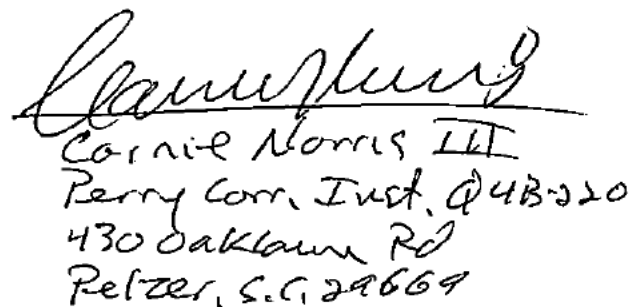 Carnie Norris III
Perry Corr. Inst. Q4B-220
430 Oaklawn Rd
Pelzer, S.C. 29669